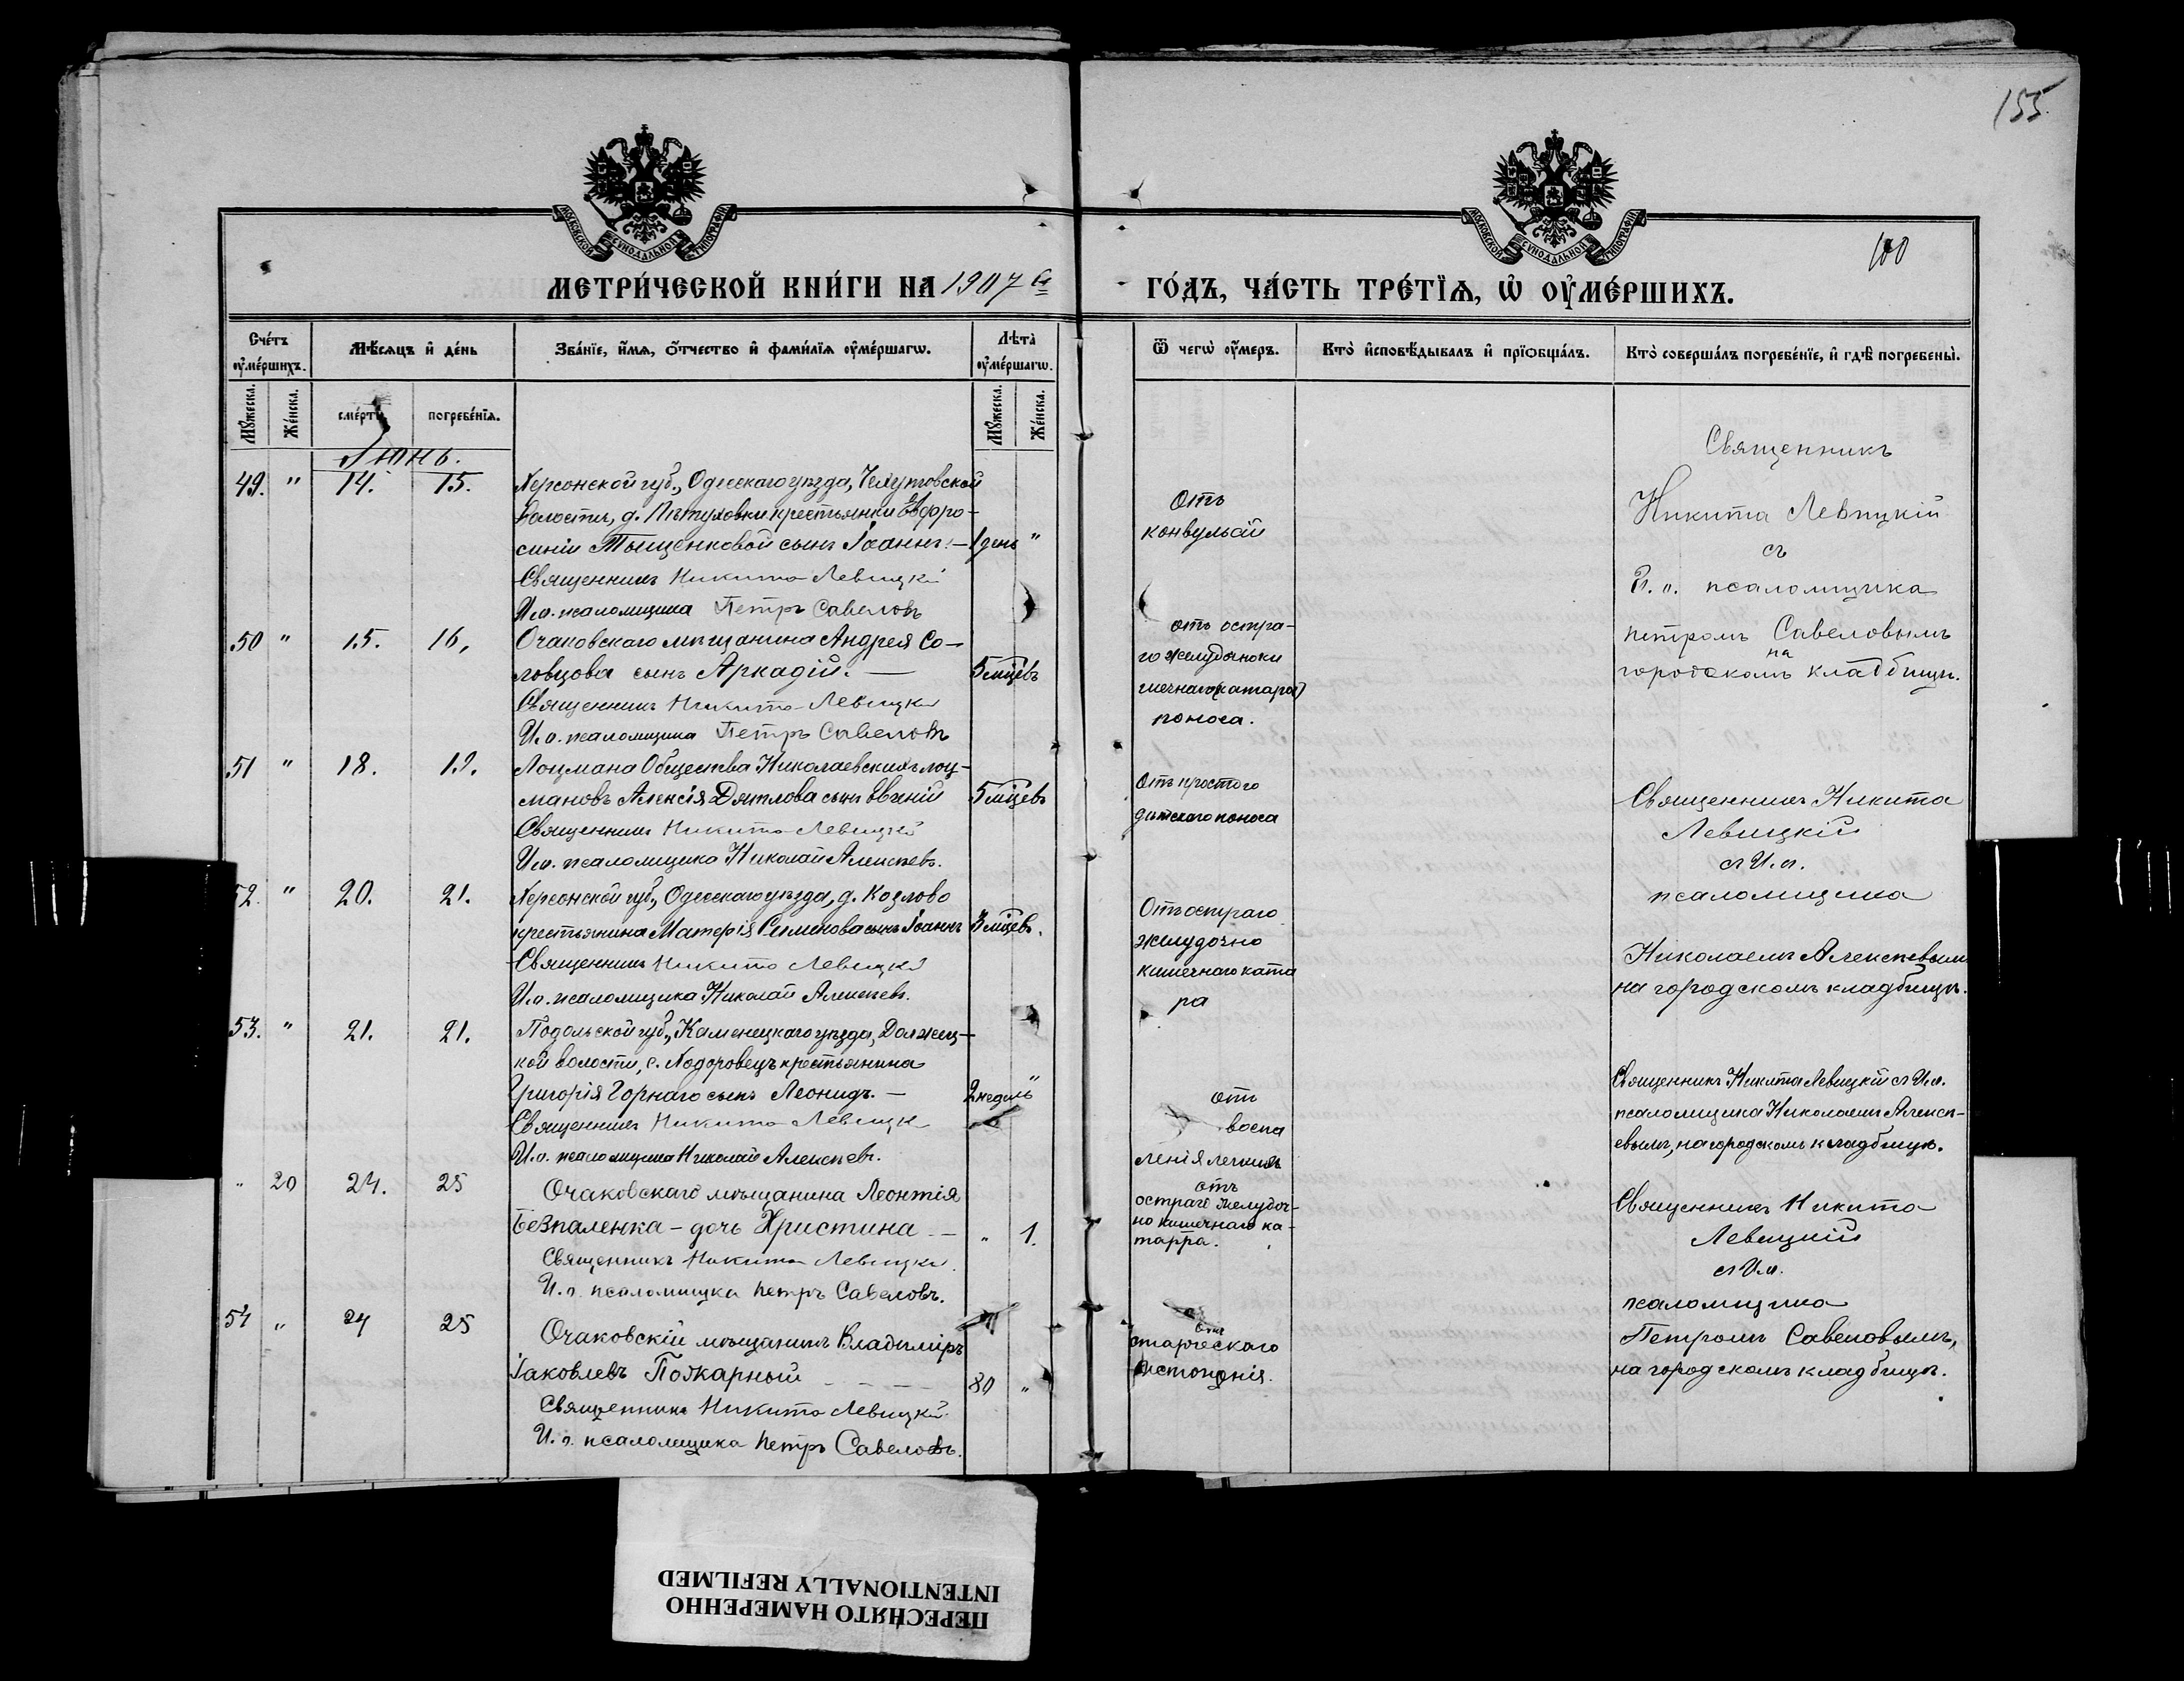 155.
МОСКОВСКОЙ СѴНОДАЛЬНОЙ ТИПОГРАФІИ
МОСКОВСКОЙ СѴНОДАЛЬНОЙ ТИПОГРАФІИ
100
МЕТРИ́ЧЕСКОЙ КНИ́ГИ НА 1907 й
ГО́ДЪ, ЧА́СТЬ ТРЕ́ТЇѦ, Ѡ҆ ОУ҆МЕ́РШИХЪ.
Сче́тъ оу҆ме́ршихъ.
Мѣ́сѧцъ и҆ де́нь
Зва́нїе, и҆́мѧ, о҆́тчество и҆ фами́лїѧ оу҆ме́ршагѡ.
Лѣта̀ оу҆ме́ршагѡ.
Ѿ чегѡ̀ оу҆́меръ.
Кто̀ и҆сповѣ́дывалъ и҆ прїѡбща́лъ.
Кто̀ соверша́лъ погребе́нїе, и҆ гдѣ̀ погребены̀.
Мꙋ́жеска.
Же́нска.
сме́рти
погребе́нїѧ.
Мꙋ́жеска.
Же́нска.
Іюнь.
49. " 14. 15.
Херсонской губ., Одесскаго уѣзда,
волости, д. Пѣтуховки крестьянки Евфро-
синіи Тыщенковой сынъ Іоаннъ. —
1 день "
Священникъ Никита Левицкій
И.о. псаломщика Петръ Савеловъ
Отъ
конвульсій
Священникъ
Никита Левицкій
съ
И. о. псаломщика
Петромъ Савеловымъ
на
городскомъ кладбищѣ.
50 " 15. 16,
Очаковскаго мѣщанина Андрея Со-
ловцова сынъ Аркадій. —
5 мцевъ
Священникъ Никита Левицкій
И.о. псаломщика Петръ Савеловъ
отъ остра-
го желудочноки
шечнаго (катарра)
поноса.
51 " 18. 19.
Лоцмана Общества Николаевскихъ лоц-
мановъ Алексія Дятлова сынъ Евгеній
5 мцевъ
Священникъ Никита Левицкій
И.о. псаломщика Николай Алексѣевъ.
Отъ простого
дѣтскаго поноса
Священникъ Никита
Левицкій
съ И.о.
псаломщика
Николаемъ Алексѣевымъ
на городскомъ кладбищѣ.
52. " 20. 21.
Херсонской губ., Одесскаго уѣзда, д. Козлово
крестьянина Семенова сынъ Іоаннъ
3 мцевъ.
Священникъ Никита Левицкій
И.о. псаломщика Николай Алексѣевъ.
Отъ остраго
желудочно
кишечнаго ката
ра
53. " 21. 21.
Подольской губ., Каменецкаго уѣзда, Должец-
кой волости, с. Ходоровецъ крестьянина
Григорія Горнаго сынъ Леонидъ. —
2 недѣль "
Священникъ Никита Левицкій
И.о. псаломщика Николай Алексѣевъ.
отъ
воспа
ленія легкихъ
Священникъ Никита Левицкій съ И.о.
псаломщика Николаемъ Алексѣ-
евымъ, на городскомъ кладбищѣ.
" 20 24. 25
Очаковскаго мѣщанина Леонтія
Безпаленка – дочь Христина. —
" 1.
Священникъ Никита Левицкій.
И. о. псаломщика Петръ Савеловъ.
отъ
остраго желудоч-
но кишечнаго ка-
тарра.
Священникъ Никита
Левицкій
съ И.о.
псаломщика
Петромъ Савеловымъ,
на городскомъ кладбищѣ.
54 " 24 25
Очаковскій мѣщанинъ Владиміръ
Іаковлевъ Пожарный
80 "
Священникъ Никита Левицкій.
И. о. псаломщика Петръ Савеловъ.
отъ
старческаго
истощенія.
ПЕРЕСНЯТО НАМЕРЕННО
INTENTIONALLY REFILMED